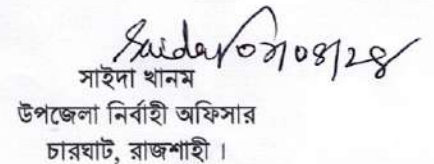 Saida
সাইদা খানম
উপজেলা নির্বাহী অফিসার
চারঘাট, রাজশাহী ।